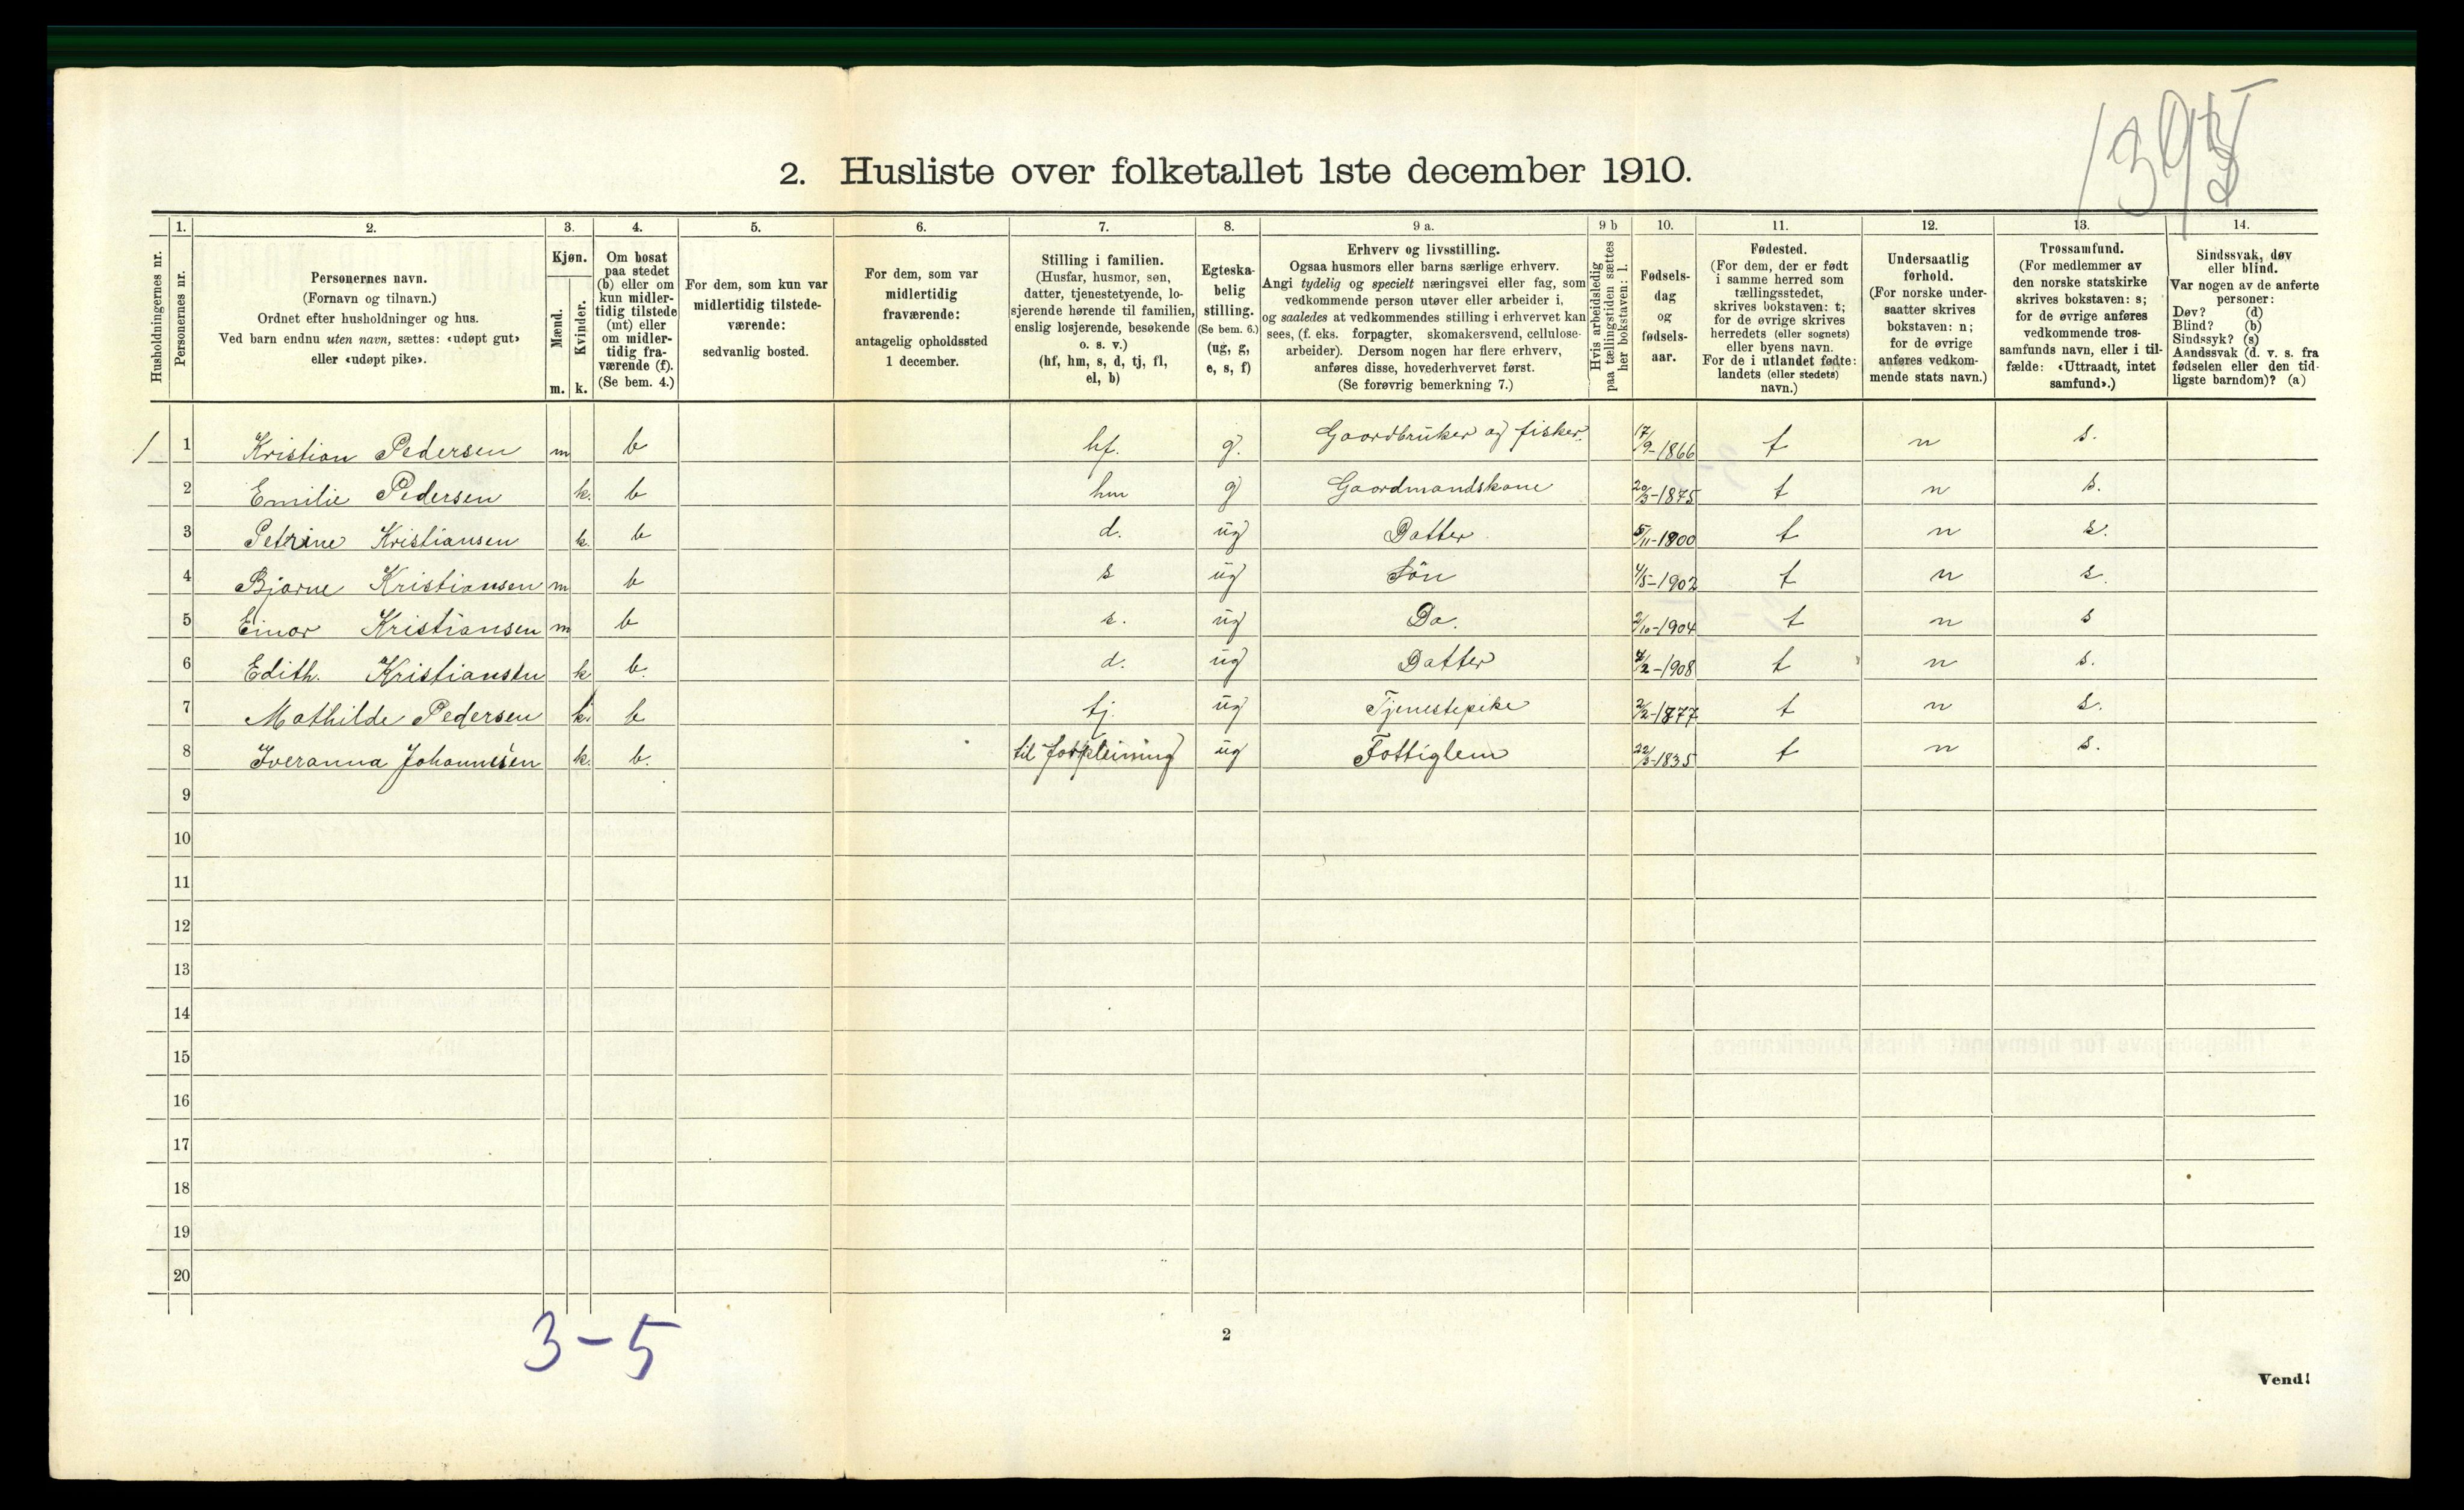 2. Husliste over folketallet 1ste december 1910.
Husholdningernes nr.
1. Personernes nr.
2. Personernes navn.
(Fornavn og tilnavn.)
Ordnet efter husholdninger og hus.
Ved barn endnu uten navn, sættes: «udøpt gut»
eller «udøpt pike».
3. Kjøn.
Mænd. m.
Kvinder. k.
4. Om bosat
paa stedet
(b) eller om
kun midler-
tidig tilstede
(mt) eller
om midler-
tidig fra-
værende (f).
(Se bem. 4.)
5. For dem, som kun var
midlertidig tilstede-
værende:
sedvanlig bosted.
6. For dem, som var
midlertidig
fraværende:
antagelig opholdssted
1 december.
7. Stilling i familien.
(Husfar, husmor, søn,
datter, tjenestetyende, lo-
sjerende hørende til familien,
enslig losjerende, besøkende
o. s. v.)
(hf, hm, s, d, tj, fl,
el, b)
8. Egteska-
belig
stilling.
(Se bem. 6.)
(ug, g,
e, s, f)
9 a. Erhverv og livsstilling.
Ogsaa husmors eller barns særlige erhverv.
Angi tydelig og specielt næringsvei eller fag, som
vedkommende person utøver eller arbeider i,
og saaledes at vedkommendes stilling i erhvervet kan
sees, (f. eks. forpagter, skomakersvend, cellulose-
arbeider). Dersom nogen har flere erhverv,
anføres disse, hovederhvervet først.
(Se forøvrig bemerkning 7.)
9 b Hvis arbeidsledig
paa tællingstiden sættes
her bokstaven: l.
10. Fødsels-
dag
og
fødsels-
aar.
11. Fødested.
(For dem, der er født
i samme herred som
tællingsstedet,
skrives bokstaven: t;
for de øvrige skrives
herredets (eller sognets)
eller byens navn.
For de i utlandet fødte:
landets (eller stedets)
navn.)
12. Undersaatlig
forhold.
(For norske under-
saatter skrives
bokstaven: n;
for de øvrige
anføres vedkom-
mende stats navn.)
13. Trossamfund.
(For medlemmer av
den norske statskirke
skrives bokstaven: s;
for de øvrige anføres
vedkommende tros-
samfunds navn, eller i til-
fælde: «Uttraadt, intet
samfund».)
14. Sindssvak, døv
eller blind.
Var nogen av de anførte
personer:
Døv? (d)
Blind? (b)
Sindssyk? (s)
Aandssvak (d. v. s. fra
fødselen eller den tid-
ligste barndom)? (a)
1 1 Kristian Pedersen m b hf. g. Gaardbruker og fisker. 17/9-1866 t n s.
2 Emilie Pedersen k. b hm g Gaardmandskone 20/3-1875 t n s.
3 Petrine Kristiansen k. b d. ug Datter 5/11-1900 t n s.
4 Bjarne Kristiansen m b s ug Sön 4/5-1902 t n s.
5 Einar Kristiansen m b s. ug Do. 2/10-1904 t n s
6 Edith. Kristiansen k b. d. ug Datter 4/2-1908 t n s.
7 Mathilde Pedersen k. b tj. ug Tjenestepike 2/2-1877 t n s.
8 Iveranna Johannesen k. b. til forpleining ug Fattiglem 22/3-1835 t n s.
9
10
11
12
13
14
15
16
17
18
19
20
3-5
2
Vend!